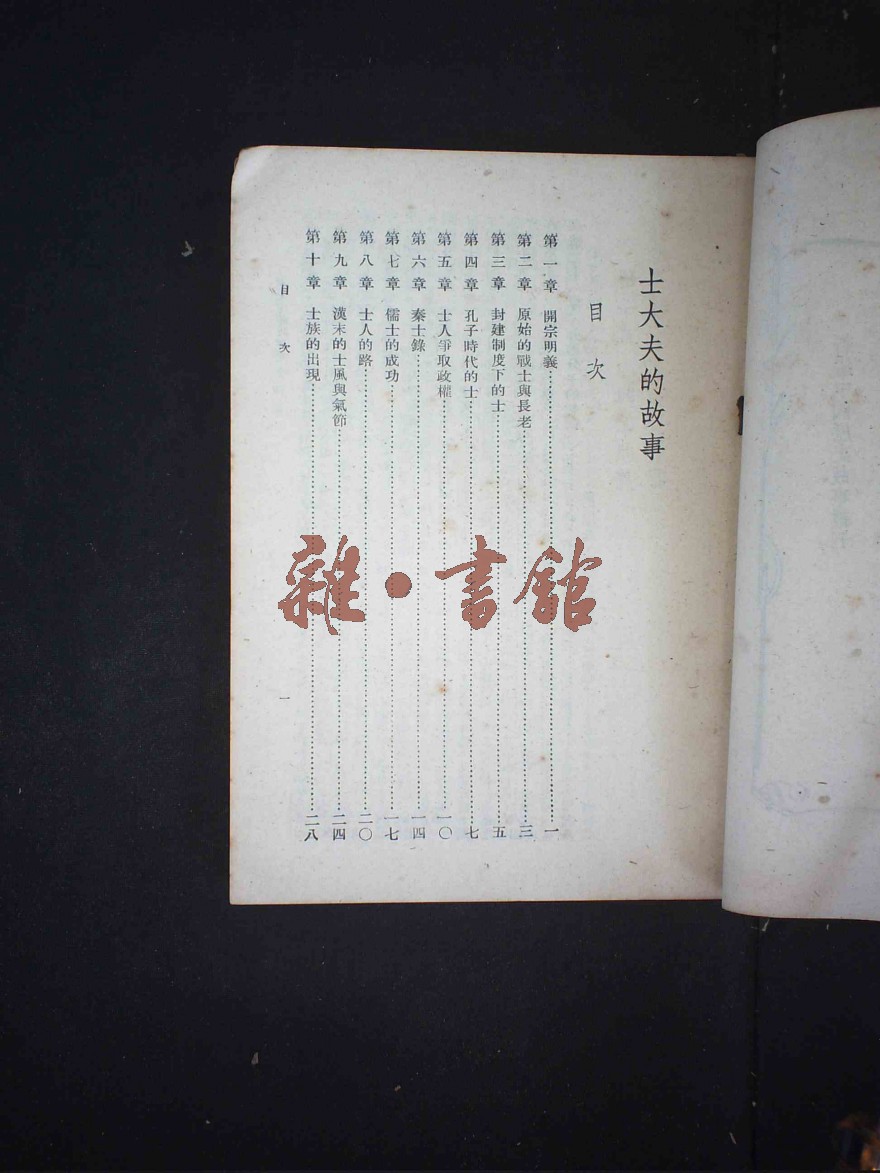 士大夫的故事
目次
第一章 開宗明義……一
第二章 原始的戰士與長老……三
第三章 封建制度下的士……五
第四章 孔子時代的士……七
第五章 士人爭取政權……一〇
第六章 秦士錄……一四
第七章 儒士的成功……一七
第八章 士人的路……二〇
第九章 漢末的士風與氣節……二四
第十章 士族的出現……二八
目次
一
雜·書館